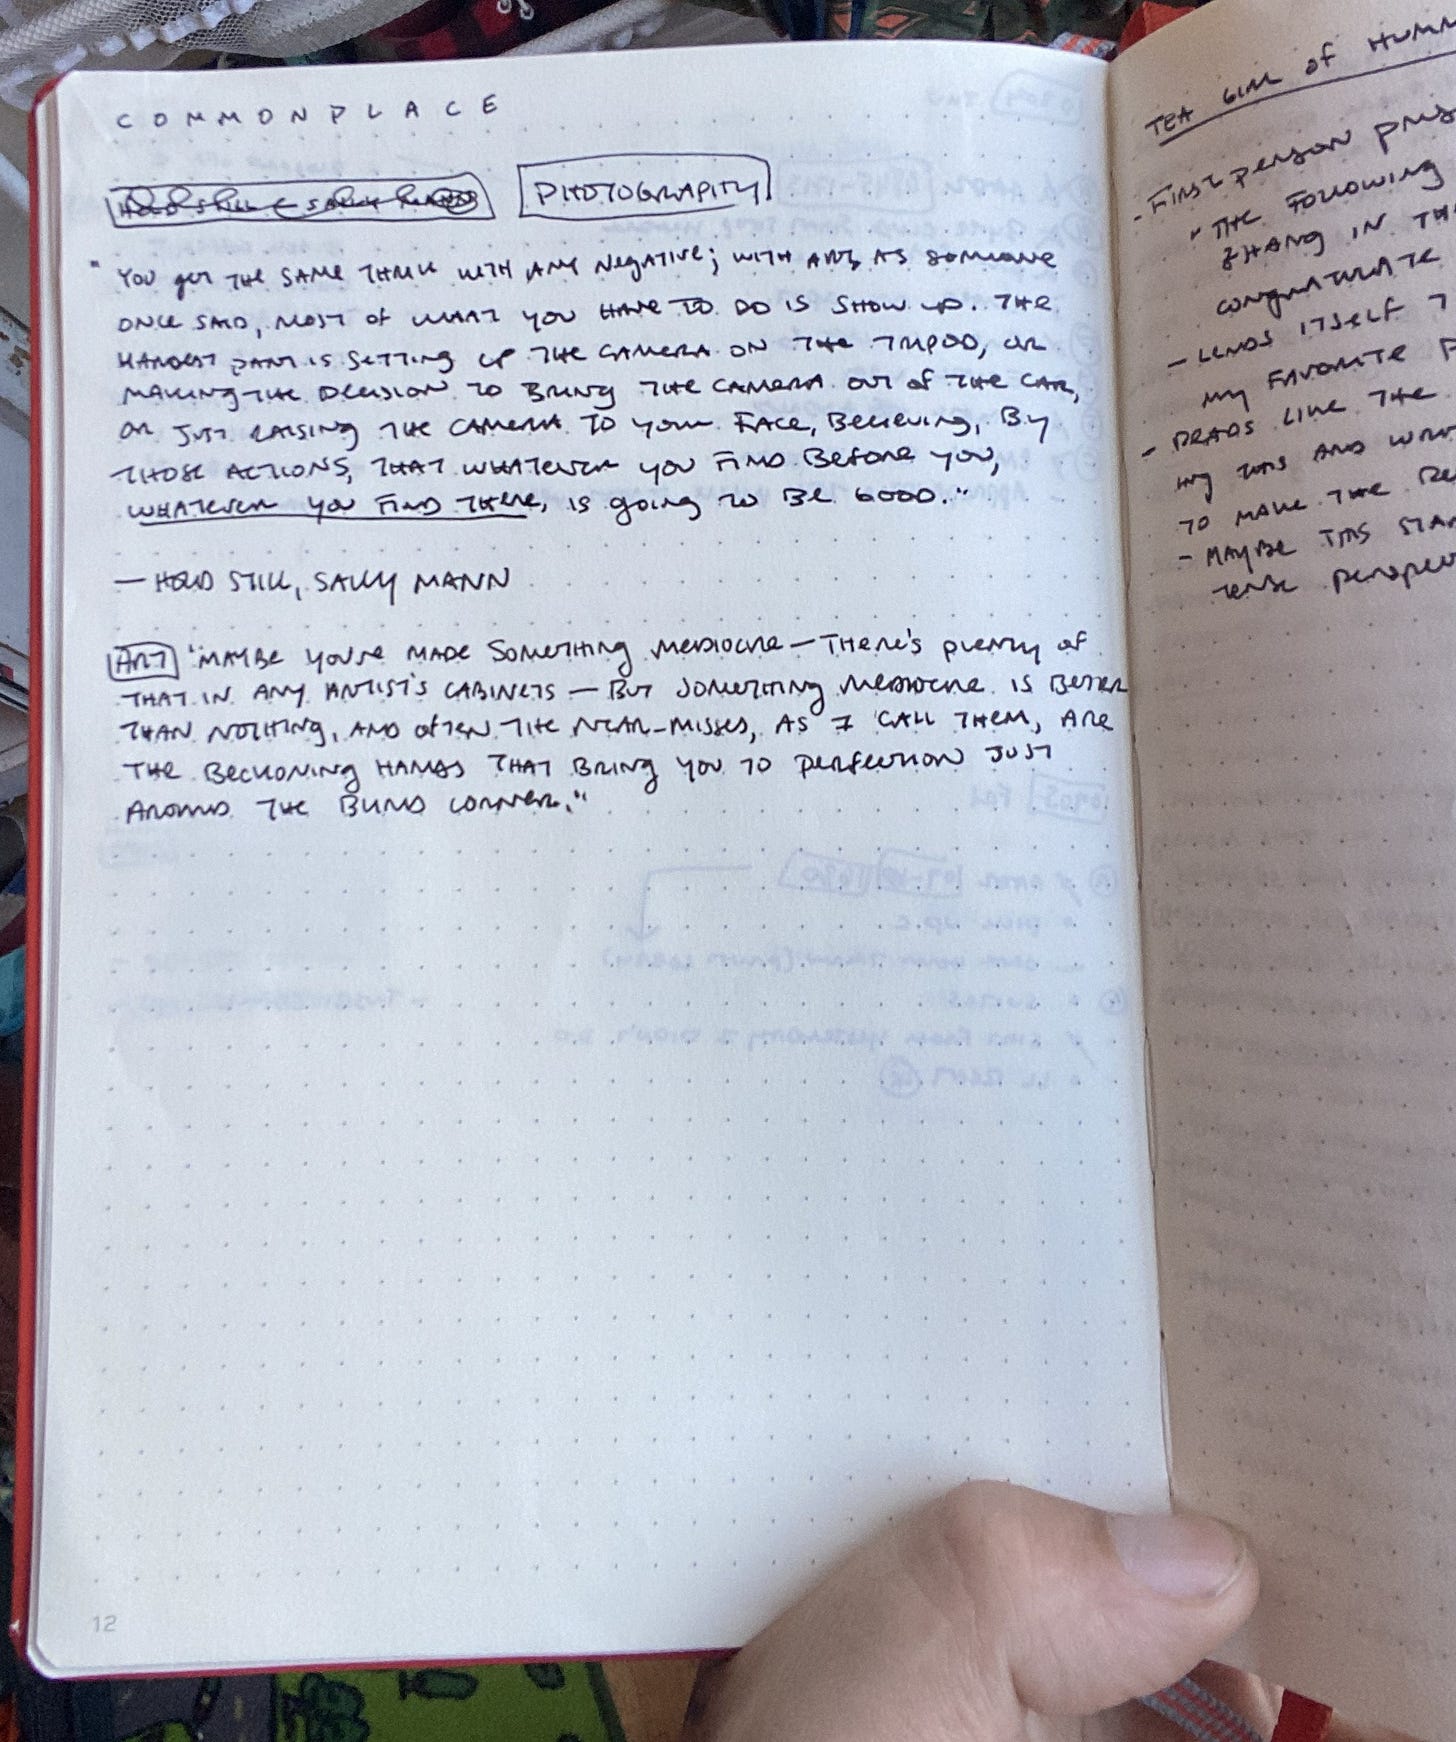 COMMONPLACE
PHOTOGRAPHY
"YOU GET THE SAME THING WITH ANY NEGATIVE; WITH ART, AS SOMEONE
ONCE SAID, MOST OF WHAT YOU HAVE TO DO IS SHOW UP. THE
HARDEST PART IS SETTING UP THE CAMERA ON THE TRIPOD, OR
MAKING THE DECISION TO BRING THE CAMERA OUT OF THE CAR,
OR JUST RAISING THE CAMERA TO YOUR FACE, BELIEVING, BY
THOSE ACTIONS, THAT WHATEVER YOU FIND BEFORE YOU,
WHATEVER YOU FIND THERE, IS GOING TO BE GOOD."
— HOLD STILL, SALLY MANN
ART "MAYBE YOU'VE MADE SOMETHING MEDIOCRE — THERE'S PLENTY OF
THAT IN ANY ARTIST'S CABINETS — BUT SOMETHING MEDIOCRE IS BETTER
THAN NOTHING, AND OFTEN THE NEAR-MISSES, AS I CALL THEM, ARE
THE BECKONING HANDS THAT BRING YOU TO PERFECTION JUST
AROUND THE BLIND CORNER."
12
TEA GIRL OF HUMM
- FIRST PERSON PRES
" THE FOLLOWING
ZHANG IN TH
CONGRATULATE
- LENDS ITSELF T
MY FAVORITE P
- READS LIKE THE
MY THIS AND WRIT
TO MAKE THE RE
- MAYBE THIS STAR
TENSE PERSPEC